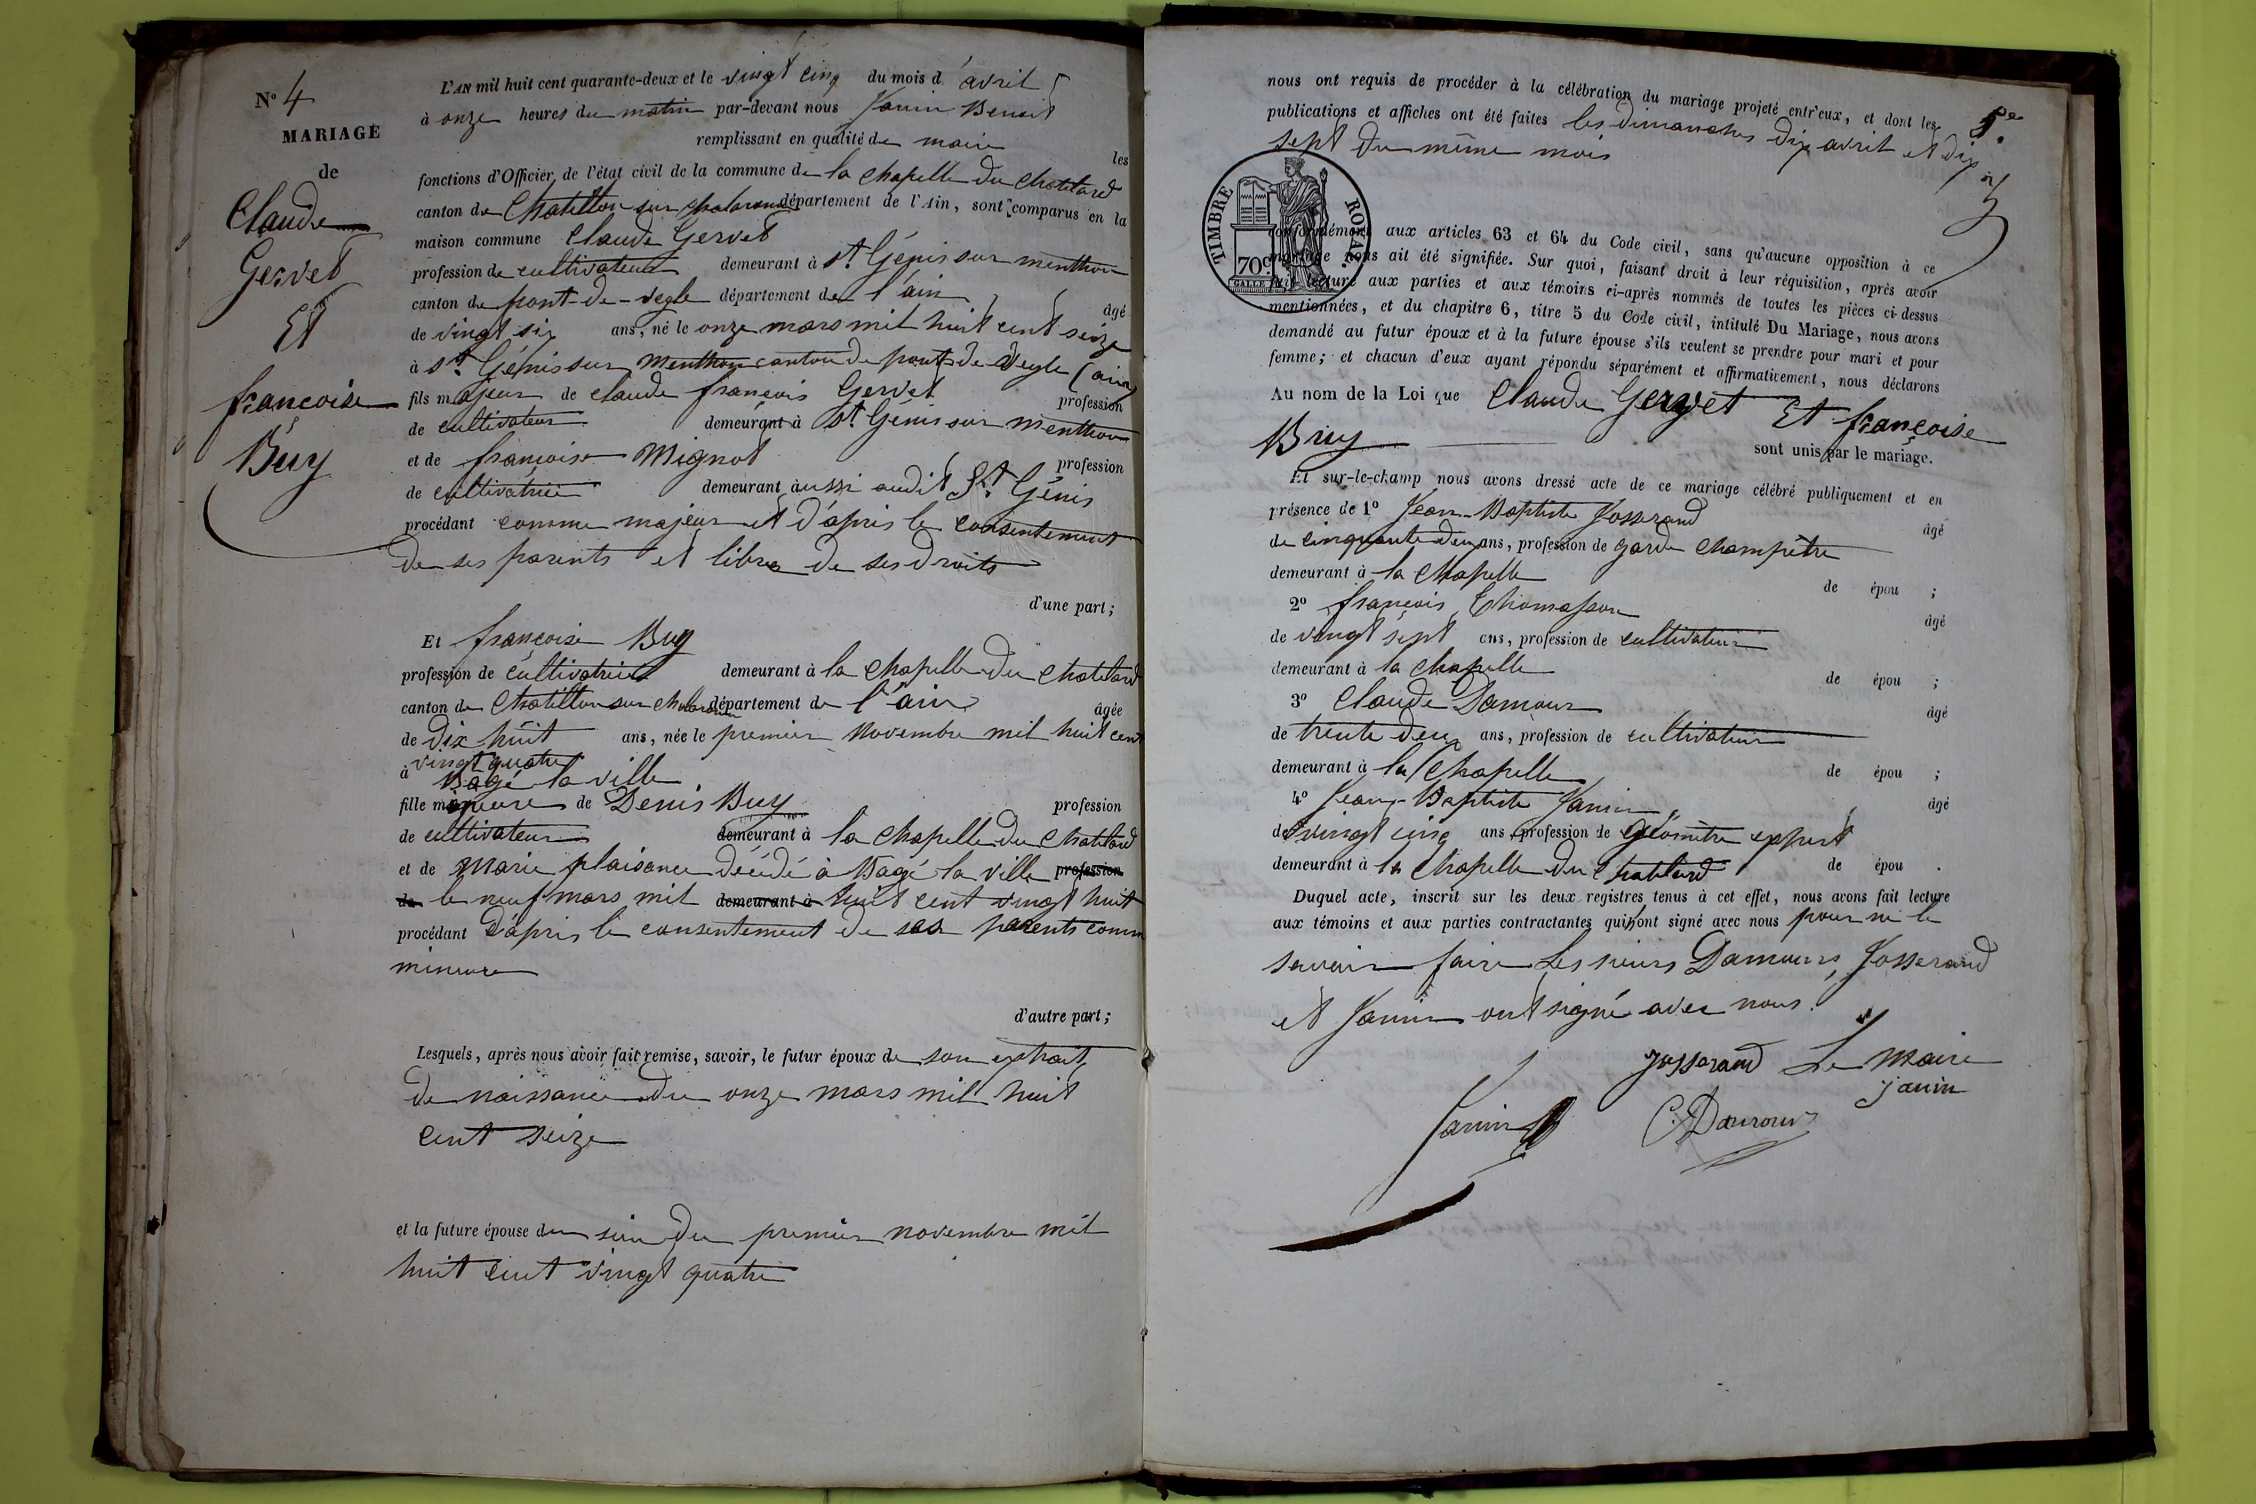 N° 4
MARIAGE
de
Claude
Gervet
Et
françoise
Buy
L'AN mil huit cent quarante-deux et le vingt cinq du mois d'avril
à onze heures du matin par-devant nous Janin Benoit
remplissant en qualité de maire les
fonctions d'Officier de l'état civil de la commune de la chapelle du chatelard
canton de Chatillon sur chalaronne département de l'Ain, sont comparus en la
maison commune Claude Gervet
profession de cultivateur demeurant à St. Génis sur menthon
canton de pont-de-vegle département de l'ain âgé
de vingt six ans, né le onze mars mil huit cent seize
à St. Génis sur Menthon canton de pont de vegle (ain)
fils majeur de claude françois Gervet profession
de cultivateur demeurant à St. Génis sur menthon
et de françoise Mignot profession
de cultivatrice demeurant aussi audit St. Génis
procédant comme majeur et d'après le consentement
de ses parents et libre de ses droits
d'une part;
Et françoise Buy
profession de cultivatrice demeurant à la chapelle du chatelard
canton de Chatillon sur chalaronne département de l'ain âgée
de dix huit ans, née le premier novembre mil huit cent
vingt quatre
à Bâgé la ville
fille mineure de Denis Buy profession
de cultivateur demeurant à la chapelle du chatelard
et de marie plaisance décédé à Bagé la ville profession
de le neuf mars mil demeurant à huit cent vingt huit
procédant d'après le consentement de ses parents comme
mineure
d'autre part;
Lesquels, après nous avoir fait remise, savoir, le futur époux de son extrait
de naissance du onze mars mil huit
cent seize
et la future épouse du sien du premier novembre mil
huit cent vingt quatre
nous ont requis de procéder à la célébration du mariage projeté entr'eux, et dont les
publications et affiches ont été faites les dimanches dix avril et dix
sept du même mois
TIMBRE ROYAL
70c
conformément aux articles 63 et 64 du Code civil, sans qu'aucune opposition à ce
mariage nous ait été signifiée. Sur quoi, faisant droit à leur réquisition, après avoir
fait lecture aux parties et aux témoins ci-après nommés de toutes les pièces ci-dessus
mentionnées, et du chapitre 6, titre 5 du Code civil, intitulé Du Mariage, nous avons
demandé au futur époux et à la future épouse s'ils veulent se prendre pour mari et pour
femme; et chacun d'eux ayant répondu séparément et affirmativement, nous déclarons
Au nom de la Loi que Claude Gervet Et françoise
Buy
sont unis par le mariage.
Et sur-le-champ nous avons dressé acte de ce mariage célébré publiquement et en
présence de 1° Jean-Baptiste Josserand âgé
de cinquante deux ans, profession de garde champêtre
demeurant à la Chapelle de épou ;
2° françois Thomasson âgé
de vingt sept ans, profession de cultivateur
demeurant à la chapelle de épou ;
3° Claude Damour âgé
de trente deux ans, profession de cultivateur
demeurant à la Chapelle de épou ;
4° Jean-Baptiste Janin âgé
de vingt cinq ans, profession de géomètre expert
demeurant à la Chapelle du Chatelard de épou .
Duquel acte, inscrit sur les deux registres tenus à cet effet, nous avons fait lecture
aux témoins et aux parties contractantes qui n'ont signé avec nous pour ne le
savoir faire Les sieurs Damours, Josserand
et Janin ont signé avec nous.
Josserand Le Maire
janin
Janin C. Damour